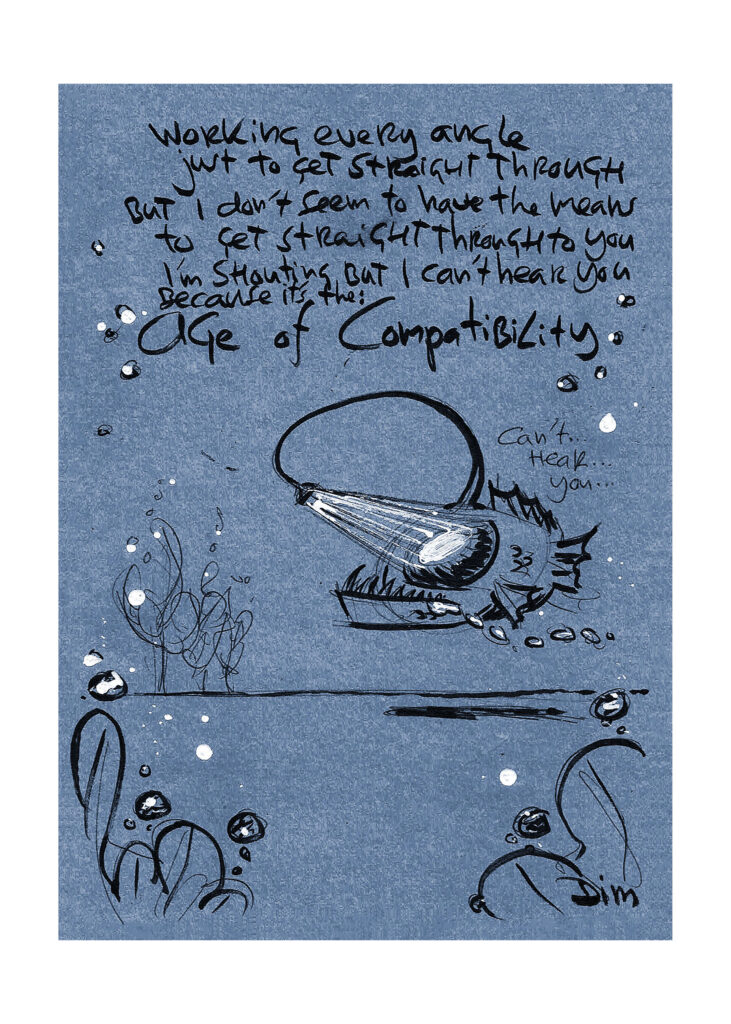 Working every angle
just to get straight through
But I don't seem to have the means
to get straight through to you
I'm shouting but I can't hear you
Because it's the:
age of Compatibility
Can't...
Hear...
you...
Dim